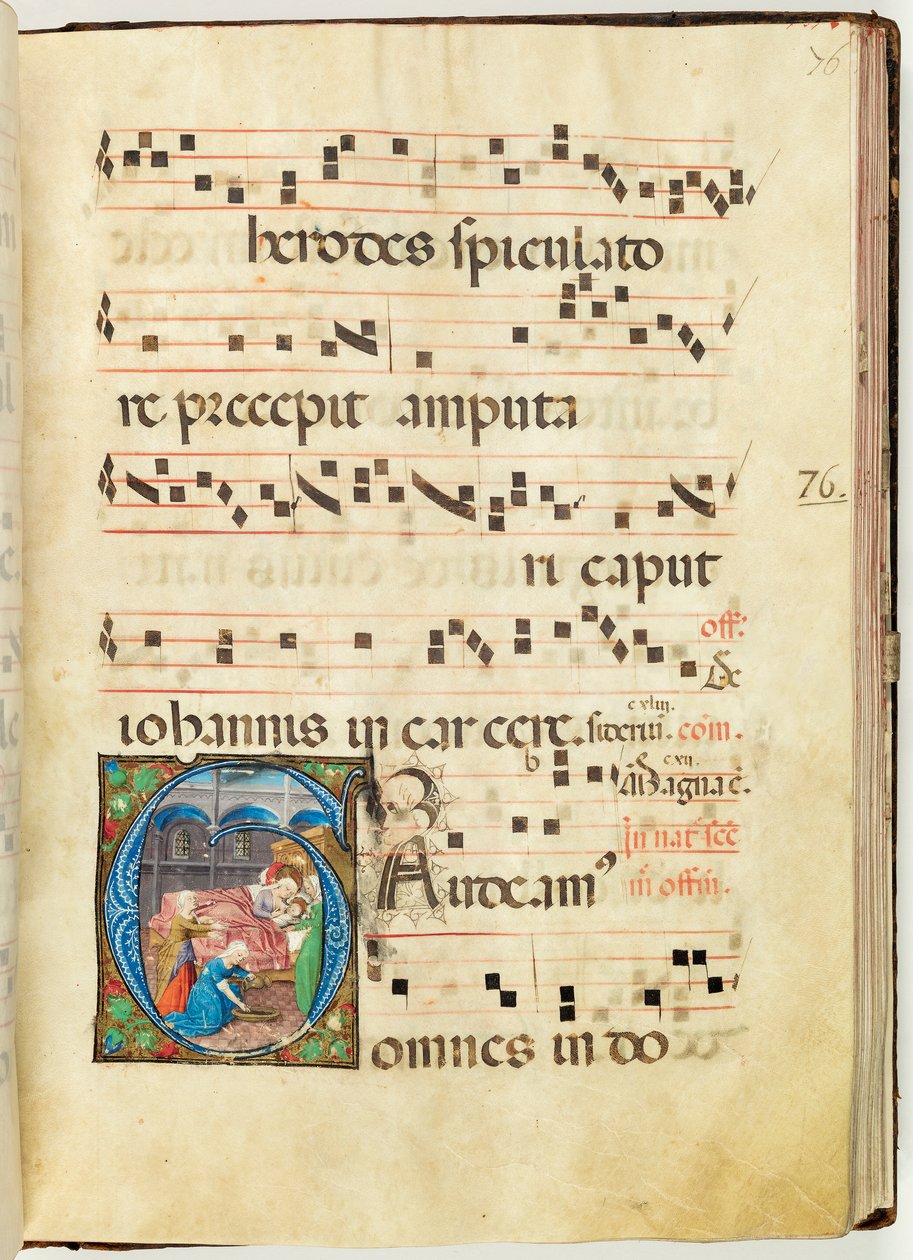 76
herodes speculato
re precepit amputa
76.
ri caput
off.
De
iohannis in carcere. sideriu. com.
cxliii.
b
cxii.
Magnac.
In nat scē
in offm.
G Audeam⁹
omnes in do